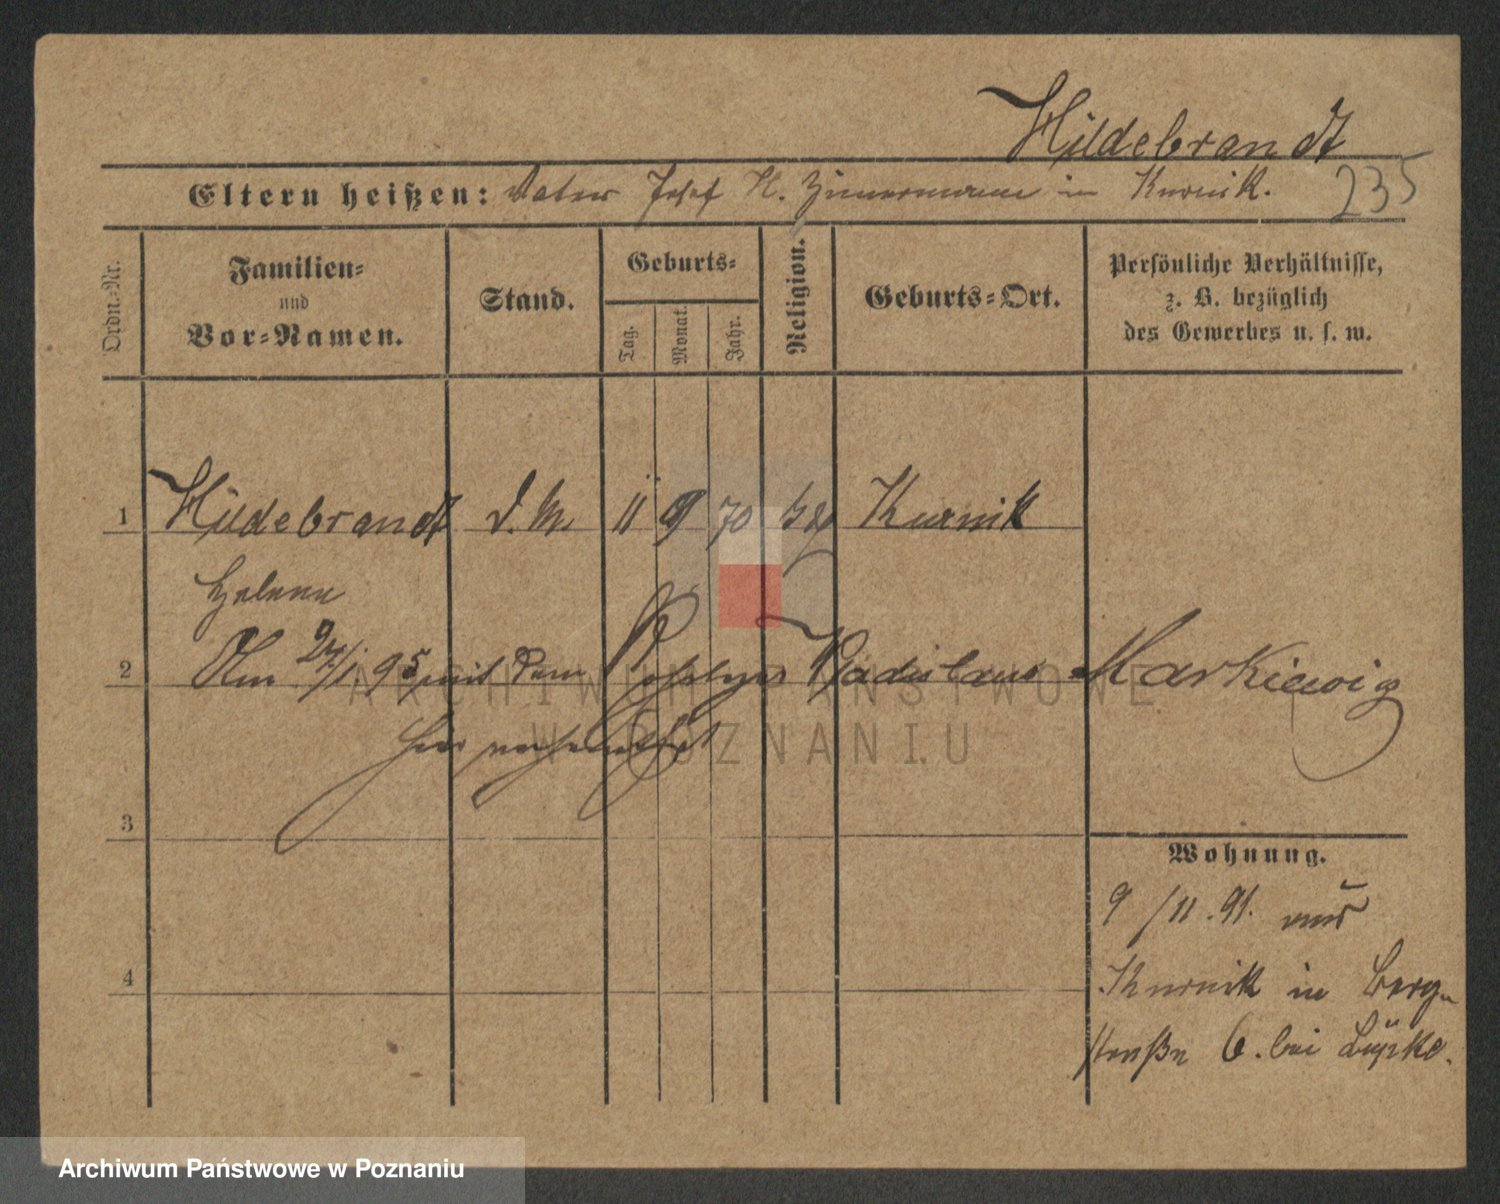 Hildebrandt
Eltern heißen: Vater Josef H. Zimmermann in Kurnik.
235
Ordn.-Nr.
Familien-
und
Vor-Namen.
Stand.
Geburts-
Tag.
Monat.
Jahr.
Religion.
Geburts-Ort.
Persönliche Verhältnisse,
z. B. bezüglich
des Gewerbes u. s. w.
1 Hildebrandt D. M. 11 9 70 Kurnik
Helene
2 Am 27/1. 95 mit dem Wladislaus Markiewicz
hier verheirathet
ARCHIWUM PAŃSTWOWE
W POZNANIU
3
Wohnung.
9/11. 91. aus
4
Kurnik in Berg-
straße 6. bei Lüpke.
Archiwum Państwowe w Poznaniu